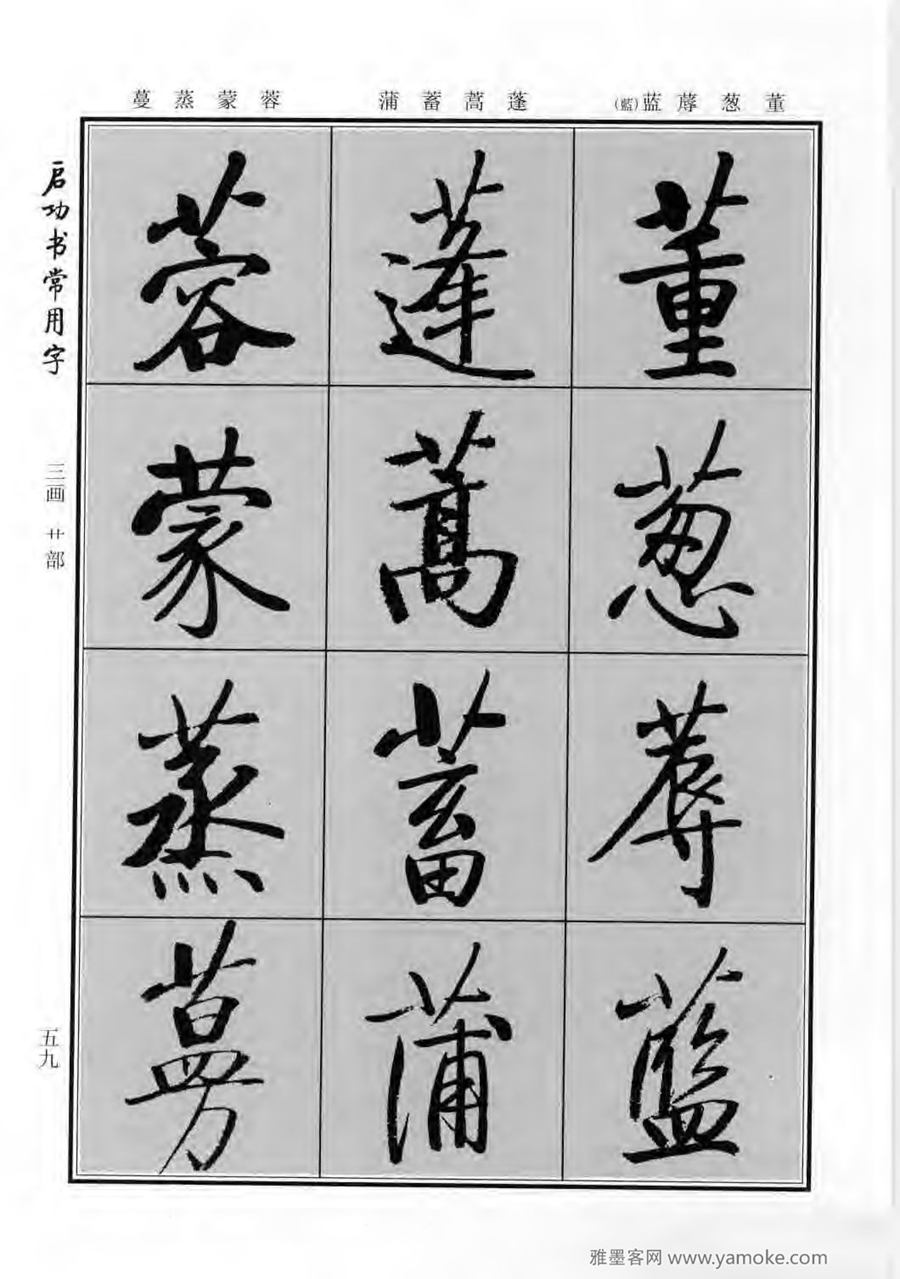 蔓蒸蒙蓉 蒲蓄蒿蓬 (藍)蓝蓐葱董
启功书常用字
三画 艹部
五九
董
葱
蓐
藍
蓬
蒿
蓄
蒲
蓉
蒙
蒸
蔓
雅墨客网 www.yamoke.com